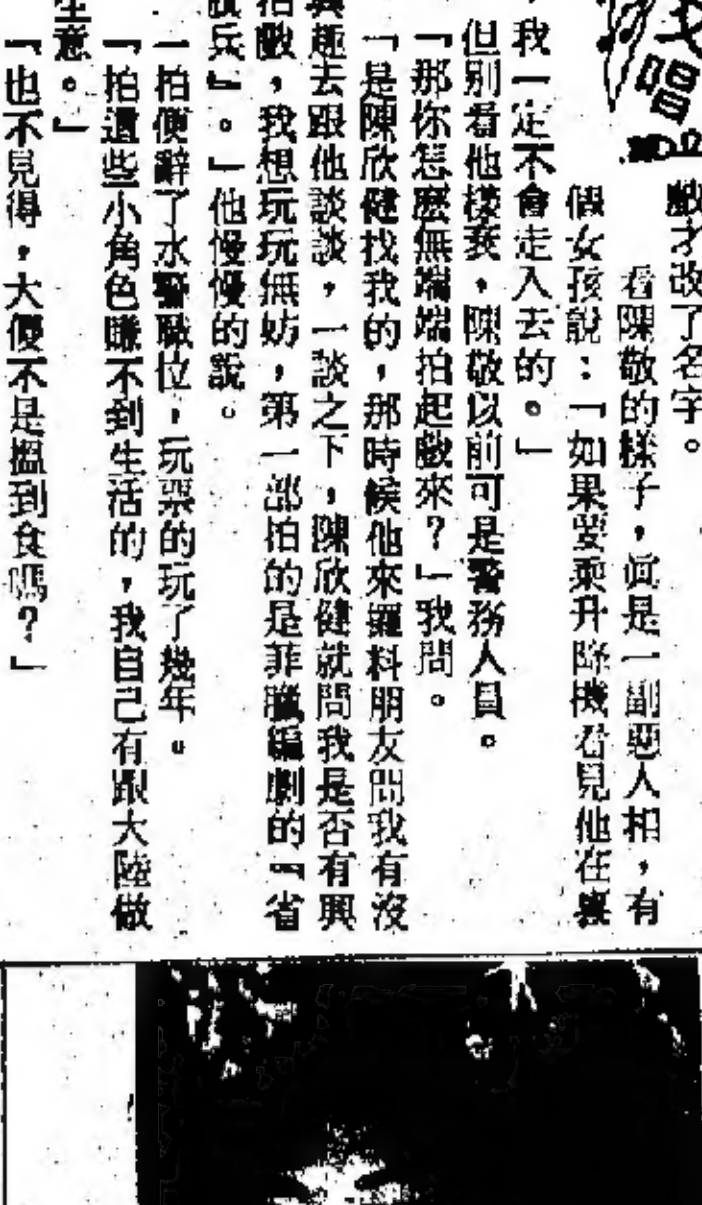 唱
戲才改了名字。
看陳敬的樣子，眞是一副惡人相，有
個女孩說：「如果要乘升降機看見他在裏
，我一定不會走入去的。」
但別看他樣衰，陳敬以前可是警務人員。
「那你怎麼無端端拍起戲來？」我問。
「是陳欣健找我的，那時候他來攞料朋友問我有沒
興趣去跟他談談，一談之下，陳欣健就問我是否有興
拍戲，我想玩玩無妨，第一部拍的是菲臘編劇的『省
旗兵』。」他慢慢的說。
一拍便辭了水警職位，玩票的玩了幾年。
「拍這些小角色賺不到生活的，我自己有跟大陸做
生意。」
「也不見得，大傻不是搵到食嗎？」